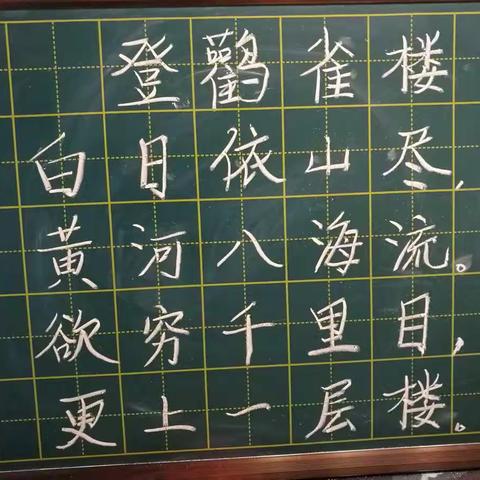 登鹳雀楼
白日依山尽，
黄河八海流。
欲穷千里目，
更上一层楼。